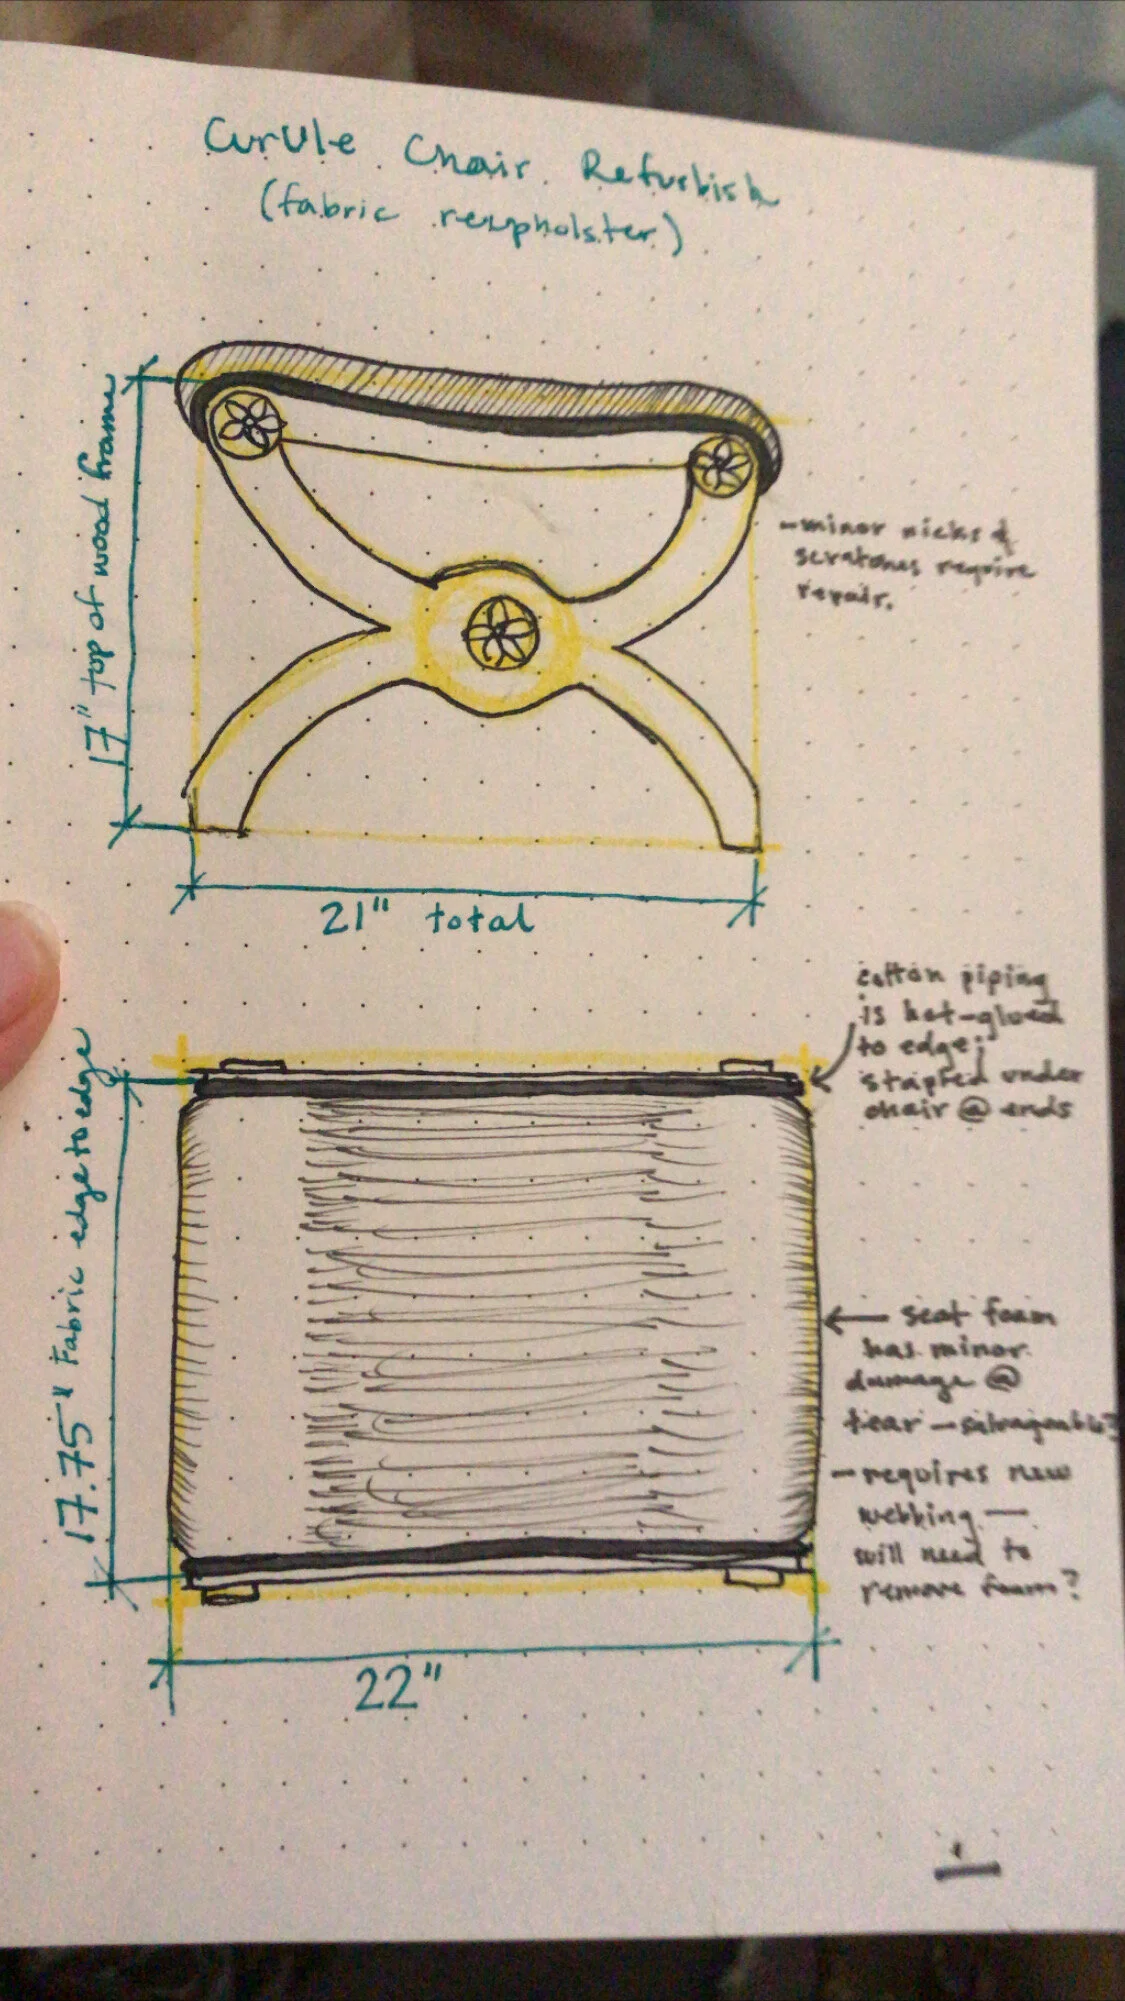 Curule Chair Refurbish
(fabric reupholster)
17" top of wood frame
- minor nicks &
scratches require
repair.
21" total
cotton piping
is hot-glued
to edge;
stapled under
chair @ ends
17.75" Fabric edge to edge
seat foam
has minor
damage @
tear - salvageable?
- requires new
webbing —
will need to
remove foam?
22"
1